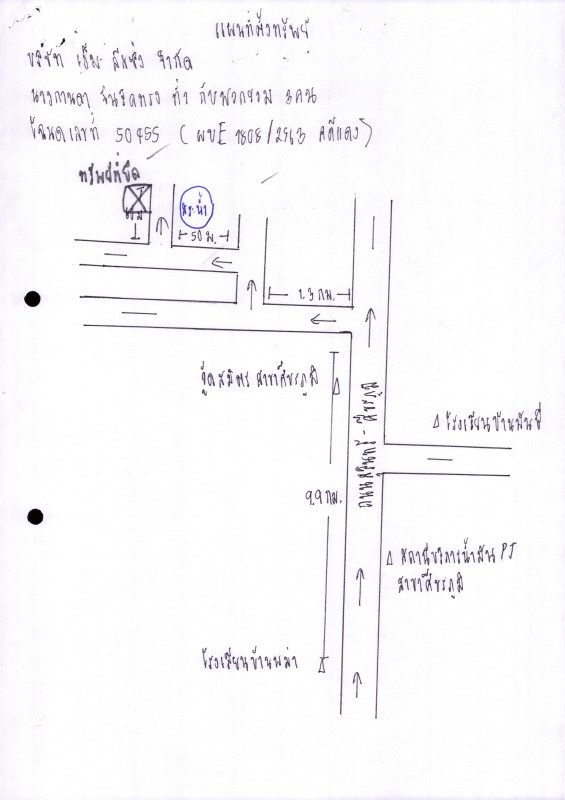 แผนที่ตั้งทรัพย์
บริษัท เอ็ม ลิสซิ่ง จำกัด
นางกานดา จันจิตทรง ที่1 กับพวกรวม 3 คน
โฉนดเลขที่ 50455 (ผบE 1808/2563 คดีแดง)
ทรัพย์ที่ยึด
สระน้ำ
50 ม.
1.3 กม.
สาขาศีขรภูมิ
ถนนสุรินทร์-ศีขรภูมิ
โรงเรียนบ้านฉันชี
9.9 กม.
สถานีบริการน้ำมัน PT
สาขาศีขรภูมิ
โรงเรียนบ้านพม่า